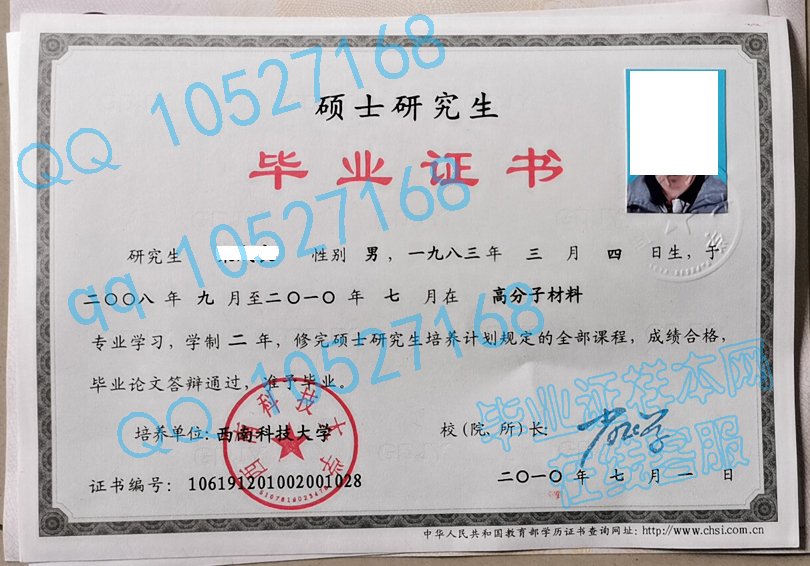 硕士研究生
毕业证书
研究生 性别 男，一九八三年 三 月 四 日生，于
二〇〇八 年 九 月至二〇一〇 年 七 月在 高分子材料
专业学习，学制 二 年，修完硕士研究生培养计划规定的全部课程，成绩合格，
毕业论文答辩通过，准予毕业。
培养单位：西南科技大学
校（院、所）长：
证书编号：106191201002001028
二〇一〇 年 七 月 一 日
中华人民共和国教育部学历证书查询网址：http://www.chsi.com.cn
西南科技大学
QQ 10527168
qq 10527168
QQ 10527168
毕业证样本网
在线客服